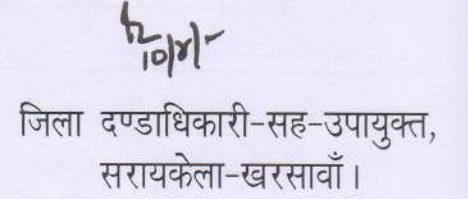 जिला दण्डाधिकारी-सह-उपायुक्त,
सरायकेला-खरसावाँ।